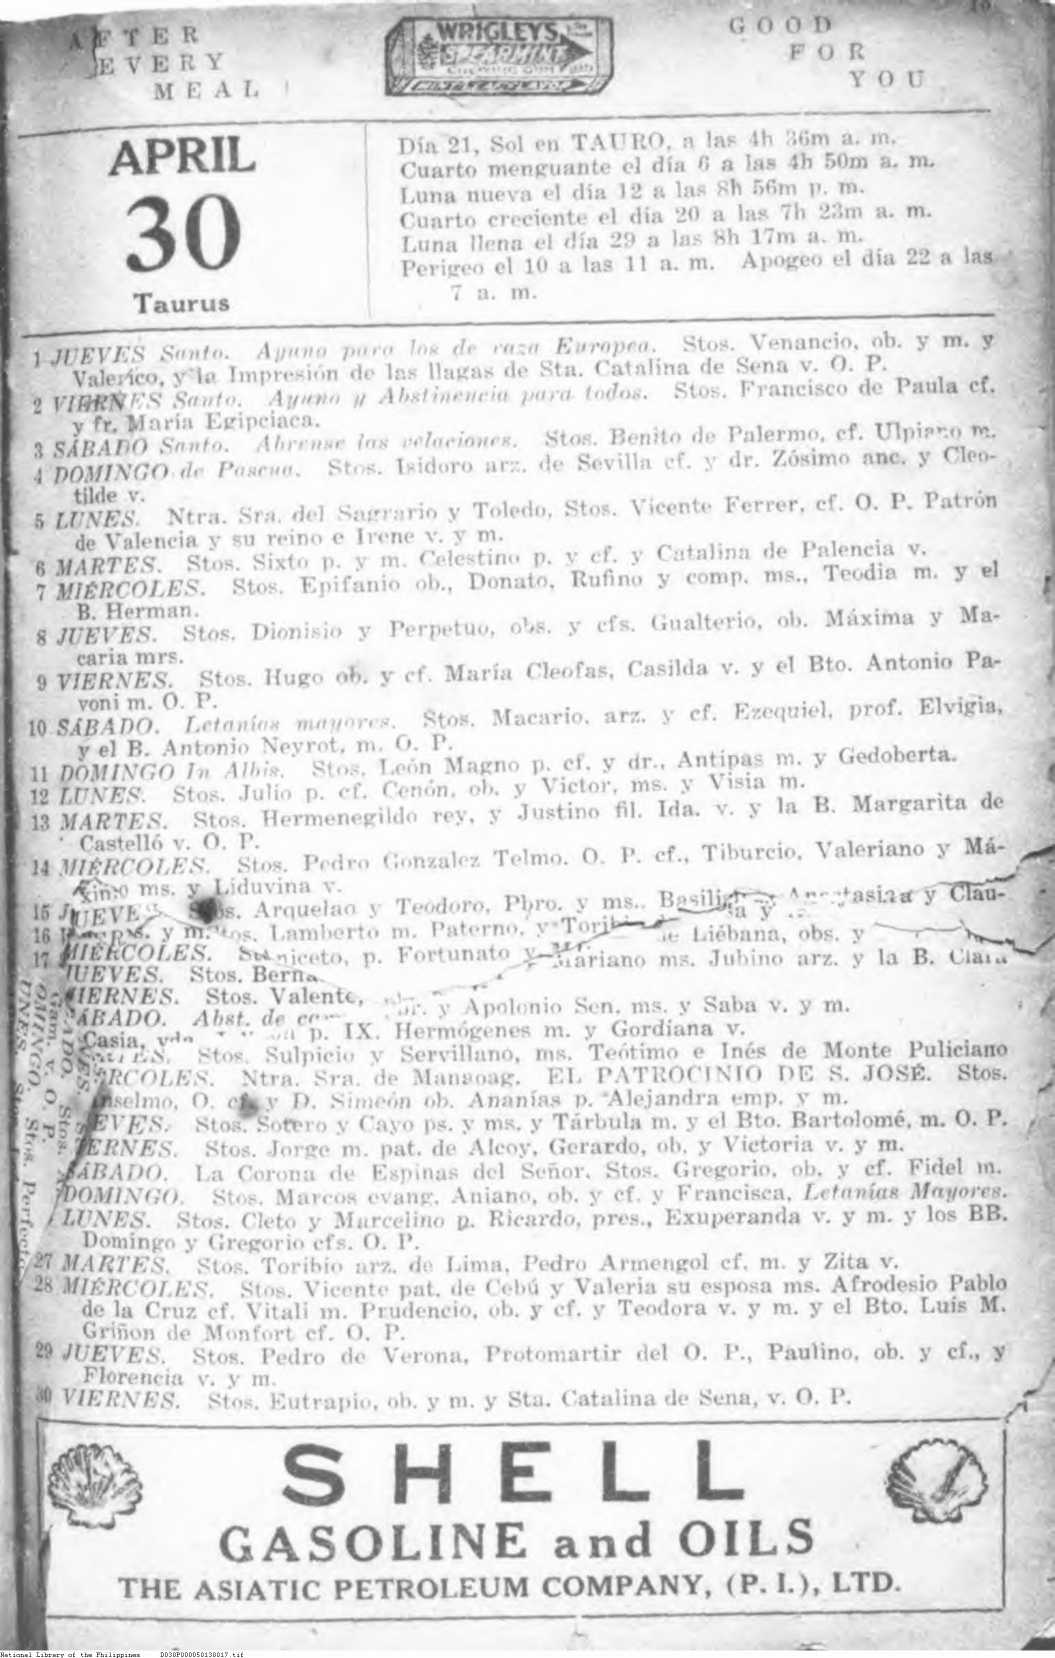 AFTER
EVERY
MEAL
WRIGLEY'S
SPEARMINT
CHEWING GUM
MINT LEAF FLAVOR
GOOD
FOR
YOU
APRIL
30
Taurus
Día 21, Sol en TAURO, a las 4h 36m a. m.
Cuarto menguante el día 6 a las 4h 50m a. m.
Luna nueva el día 12 a las 8h 56m p. m.
Cuarto creciente el día 20 a las 7h 23m a. m.
Luna llena el día 29 a las 8h 17m a. m.
Perigeo el 10 a las 11 a. m. Apogeo el día 22 a las
7 a. m.
1 JUEVES Santo. Ayuno para los de raza Europea. Stos. Venancio, ob. y m. y
Valerico, y la Impresión de las llagas de Sta. Catalina de Sena v. O. P.
2 VIERNES Santo. Ayuno y Abstinencia para todos. Stos. Francisco de Paula cf.
y fr. María Egipciaca.
3 SÁBADO Santo. Abrense las velaciones. Stos. Benito de Palermo, cf. Ulpiano m.
4 DOMINGO de Pascua. Stos. Isidoro arz. de Sevilla cf. y dr. Zósimo anc. y Cleo-
tilde v.
5 LUNES. Ntra. Sra. del Sagrario y Toledo, Stos. Vicente Ferrer, cf. O. P. Patrón
de Valencia y su reino e Irene v. y m.
6 MARTES. Stos. Sixto p. y m. Celestino p. y cf. y Catalina de Palencia v.
7 MIÉRCOLES. Stos. Epifanio ob., Donato, Rufino y comp. ms., Teodia m. y el
B. Herman.
8 JUEVES. Stos. Dionisio y Perpetuo, obs. y cfs. Gualterio, ob. Máxima y Ma-
caria mrs.
9 VIERNES. Stos. Hugo ob. y cf. María Cleofas, Casilda v. y el Bto. Antonio Pa-
voni m. O. P.
10 SÁBADO. Letanías mayores. Stos. Macario, arz. y cf. Ezequiel, prof. Elvigia,
y el B. Antonio Neyrot, m. O. P.
11 DOMINGO In Albis. Stos. León Magno p. cf. y dr., Antipas m. y Gedoberta.
12 LUNES. Stos. Julio p. cf. Cenón, ob. y Victor, ms. y Visia m.
13 MARTES. Stos. Hermenegildo rey, y Justino fil. Ida. v. y la B. Margarita de
Castelló v. O. P.
14 MIÉRCOLES. Stos. Pedro Gonzalez Telmo. O. P. cf., Tiburcio, Valeriano y Má-
ximo ms. y Liduvina v.
15 JUEVES. Stos. Arquelao y Teodoro, Pbro. y ms., Basilisa y Anastasia y Clau-
16 Stos. Lamberto m. Paterno, y Toribio de Liébana, obs. y
17 MIÉRCOLES. Aniceto, p. Fortunato y Mariano ms. Jubino arz. y la B. Clara
JUEVES. Stos. Berna
VIERNES. Stos. Valente, y Apolonio Sen. ms. y Saba v. y m.
SÁBADO. Abst. de p. IX. Hermógenes m. y Gordiana v.
Casia,
Stos. Sulpicio y Servillano, ms. Teótimo e Inés de Monte Puliciano
MIÉRCOLES. Ntra. Sra. de Manaoag. EL PATROCINIO DE S. JOSÉ. Stos.
Anselmo, O. cf. y D. Simeón ob. Ananías p. Alejandra emp. y m.
JUEVES. Stos. Sotero y Cayo ps. y ms. y Tárbula m. y el Bto. Bartolomé, m. O. P.
VIERNES. Stos. Jorge m. pat. de Alcoy, Gerardo, ob. y Victoria v. y m.
SÁBADO. La Corona de Espinas del Señor. Stos. Gregorio, ob. y cf. Fidel m.
DOMINGO. Stos. Marcos evang. Aniano, ob. y cf. y Francisca, Letanías Mayores.
LUNES. Stos. Cleto y Marcelino p. Ricardo, pres., Exuperanda v. y m. y los BB.
Domingo y Gregorio cfs. O. P.
27 MARTES. Stos. Toribio arz. de Lima, Pedro Armengol cf. m. y Zita v.
28 MIÉRCOLES. Stos. Vicente pat. de Cebú y Valeria su esposa ms. Afrodesio Pablo
de la Cruz cf. Vitali m. Prudencio, ob. y cf. y Teodora v. y m. y el Bto. Luis M.
Griñon de Monfort cf. O. P.
29 JUEVES. Stos. Pedro de Verona, Protomartir del O. P., Paulino, ob. y cf., y
Florencia v. y m.
30 VIERNES. Stos. Eutrapio, ob. y m. y Sta. Catalina de Sena, v. O. P.
SHELL
GASOLINE and OILS
THE ASIATIC PETROLEUM COMPANY, (P. I.), LTD.
National Library of the Philippines D038P000050138017.tif